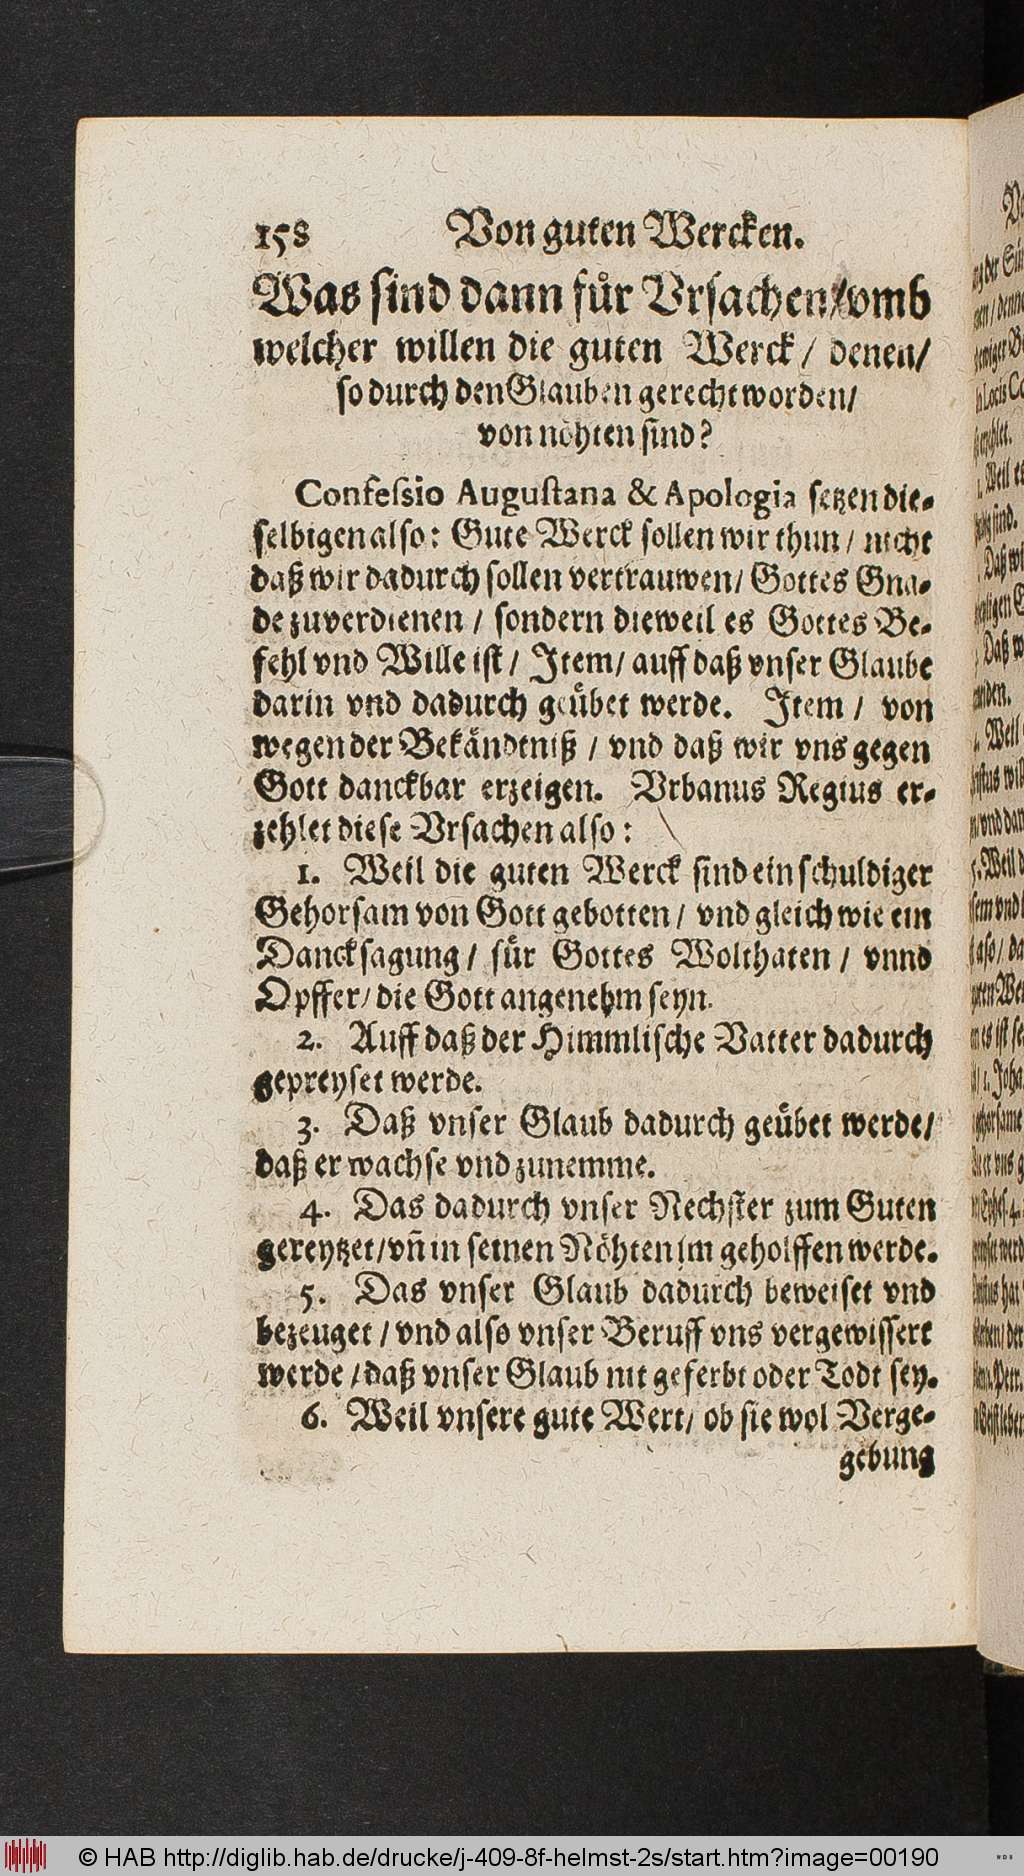 158 Von guten Wercken.
Was sind dann für Vrsachen / vmb
welcher willen die guten Werck / denen /
so durch den Glauben gerecht worden /
von nöhten sind?
Confessio Augustana & Apologia setzen die-
selbigen also: Gute Werck sollen wir thun / nicht
daß wir dadurch sollen vertrauwen / Gottes Gna-
de zuverdienen / sondern dieweil es Gottes Be-
fehl vnd Wille ist / Item / auff daß vnser Glaube
darin vnd dadurch geübet werde. Item / von
wegen der Bekändtniß / vnd daß wir vns gegen
Gott danckbar erzeigen. Vrbanus Regius er-
zehlet diese Vrsachen also:
1. Weil die guten Werck sind ein schuldiger
Gehorsam von Gott gebotten / vnd gleich wie ein
Dancksagung / für Gottes Wolthaten / vnnd
Opffer / die Gott angenehm seyn.
2. Auff daß der Himmlische Vatter dadurch
gepreyset werde.
3. Daß vnser Glaub dadurch geübet werde /
daß er wachse vnd zunemme.
4. Das dadurch vnser Nechster zum Guten
gereytzet / vñ in seinen Nöhten jm geholffen werde.
5. Das vnser Glaub dadurch beweiset vnd
bezeuget / vnd also vnser Beruff vns vergewissert
werde / daß vnser Glaub nit geferbt oder Todt sey.
6. Weil vnsere gute Wert / ob sie wol Verge-
gebung
© HAB http://diglib.hab.de/drucke/j-409-8f-helmst-2s/start.htm?image=00190